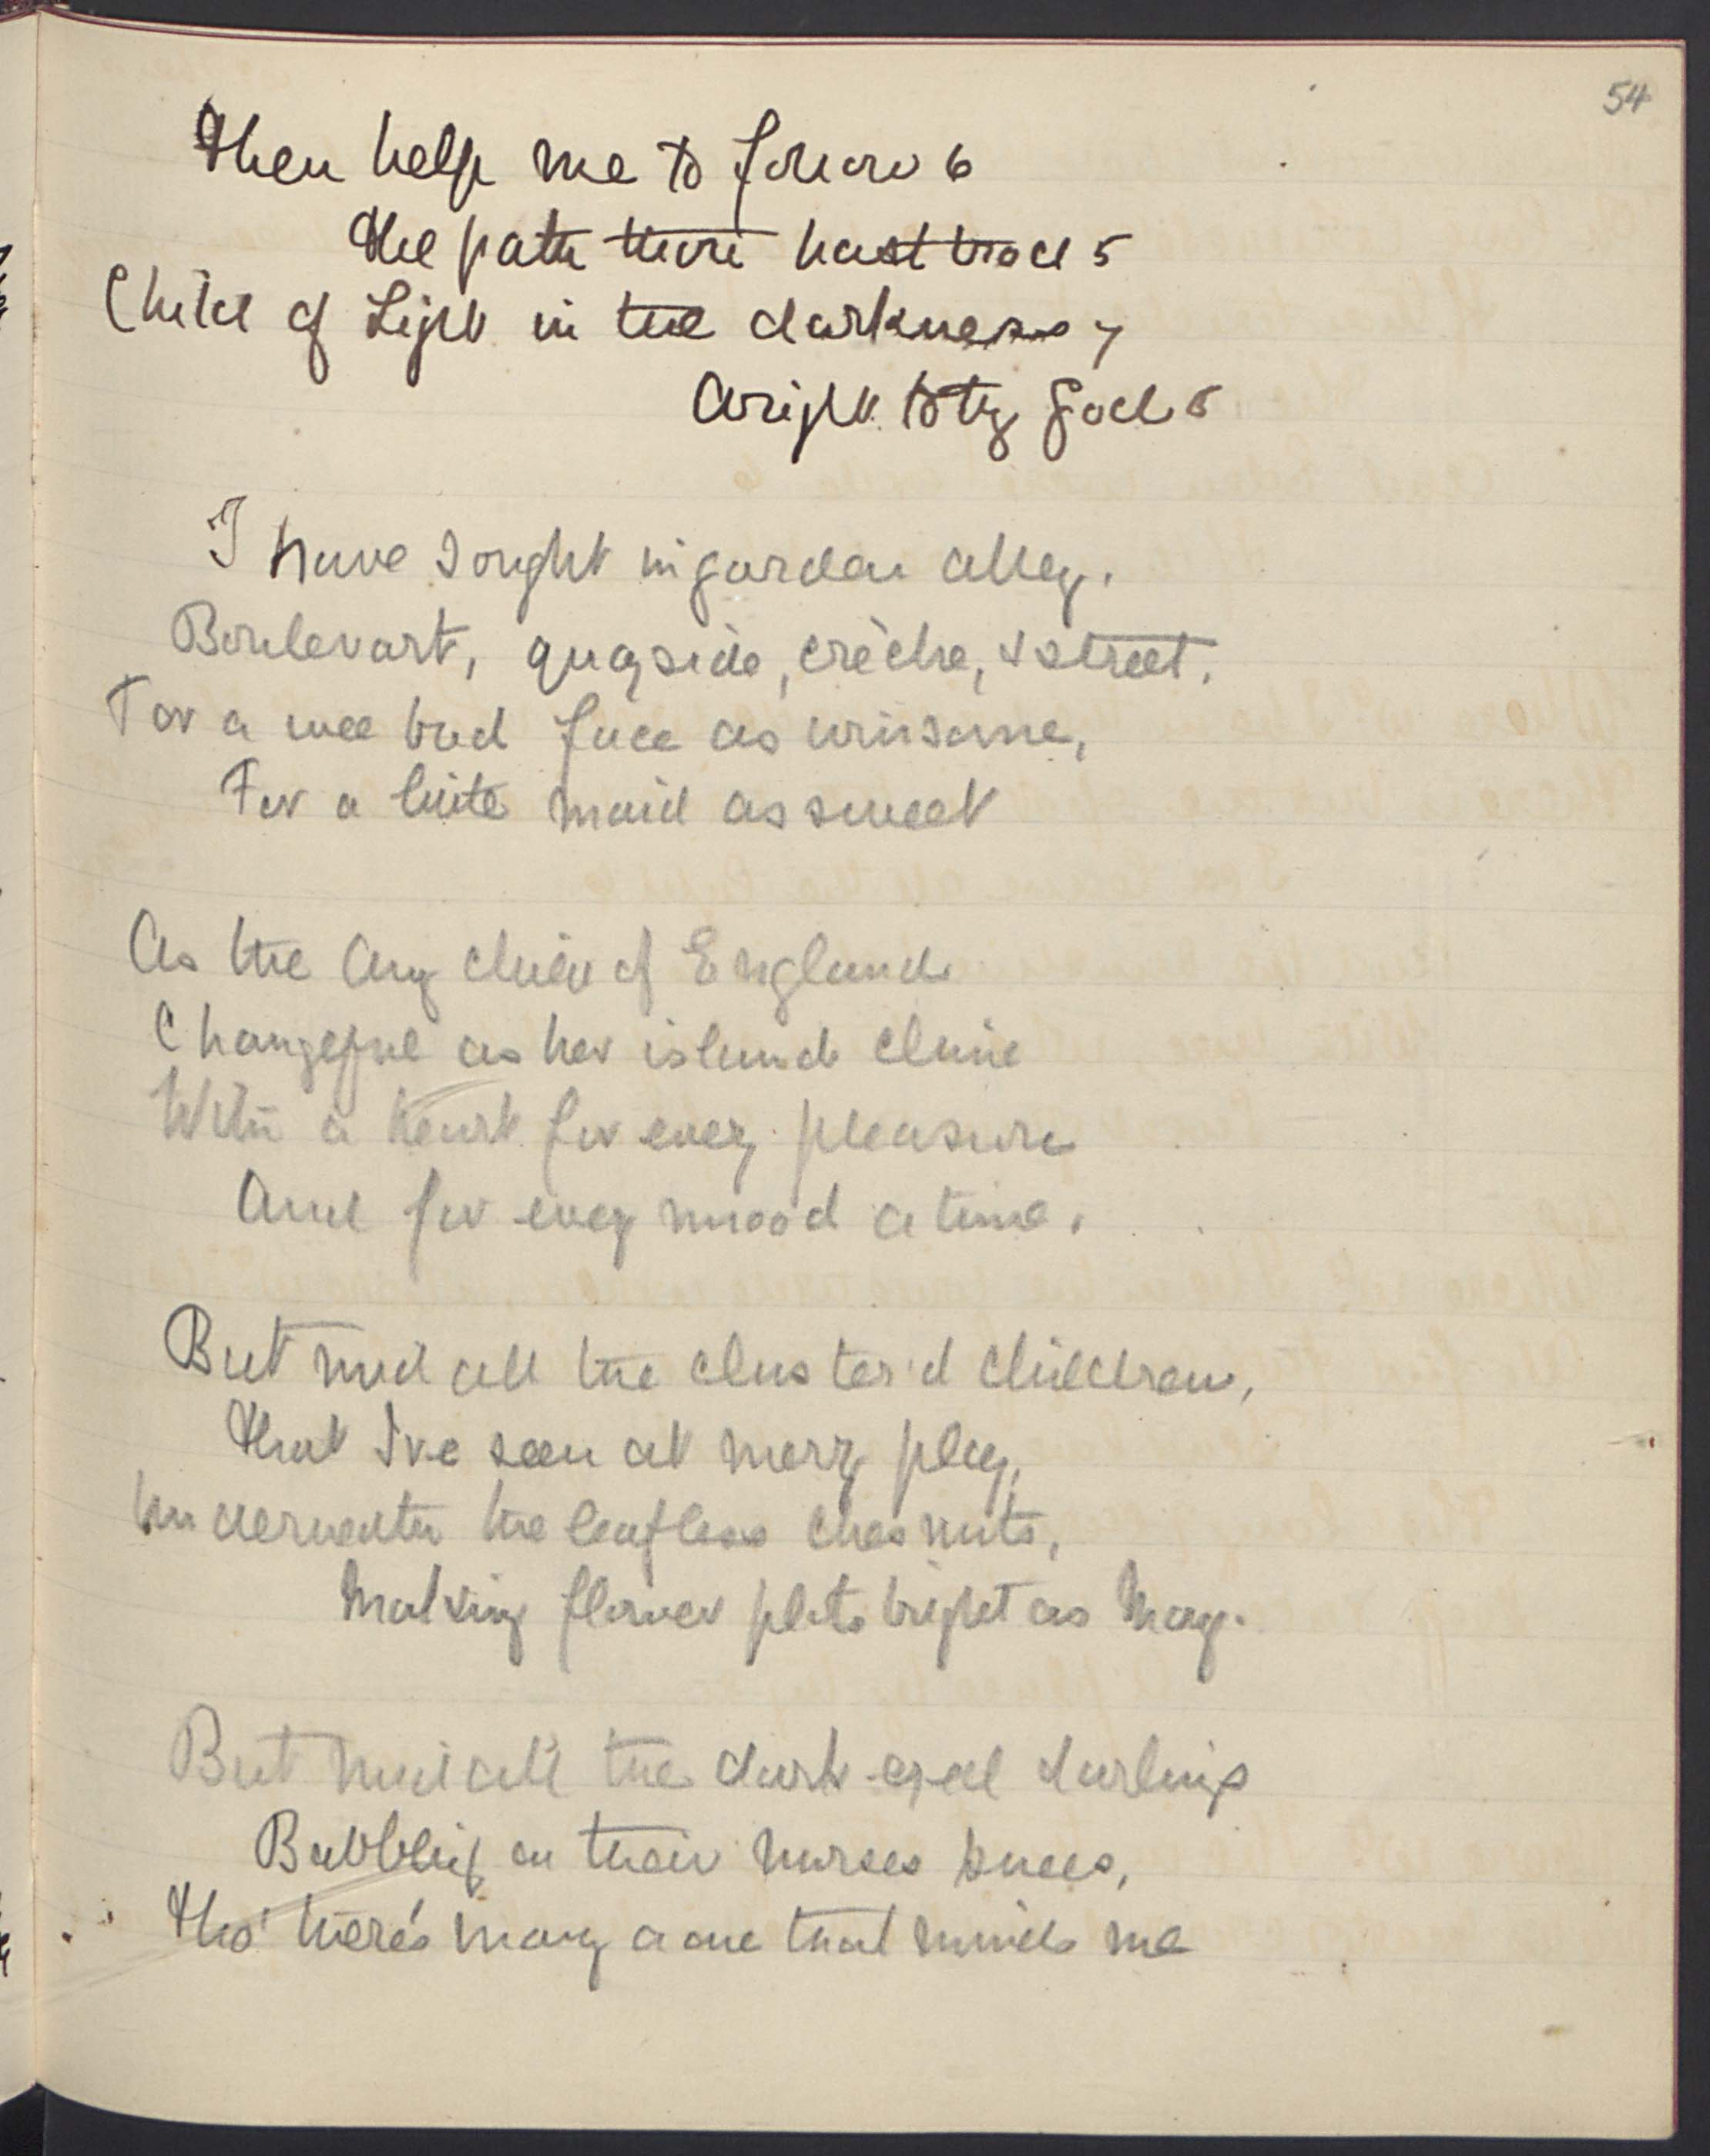 54
Then help me to follow 6
The path thou hast trod 5
Child of Light in the darkness 7
Aright to thy God 5
I have sought in garden alley,
Boulevart, quayside, crèche, & street,
For a wee bud face as winsome,
For a little maid as sweet
As the Any child of England
Changeful as her island clime
With a heart for every pleasure
And for every mood a time.
But mid all the cluster'd children,
That I've seen at merry play,
Underneath the leafless chesnuts,
Making flower plots bright as May.
But mid all the dark-eyed darlings
Babbling on their nurses knees,
Tho' there's many a one that minds me